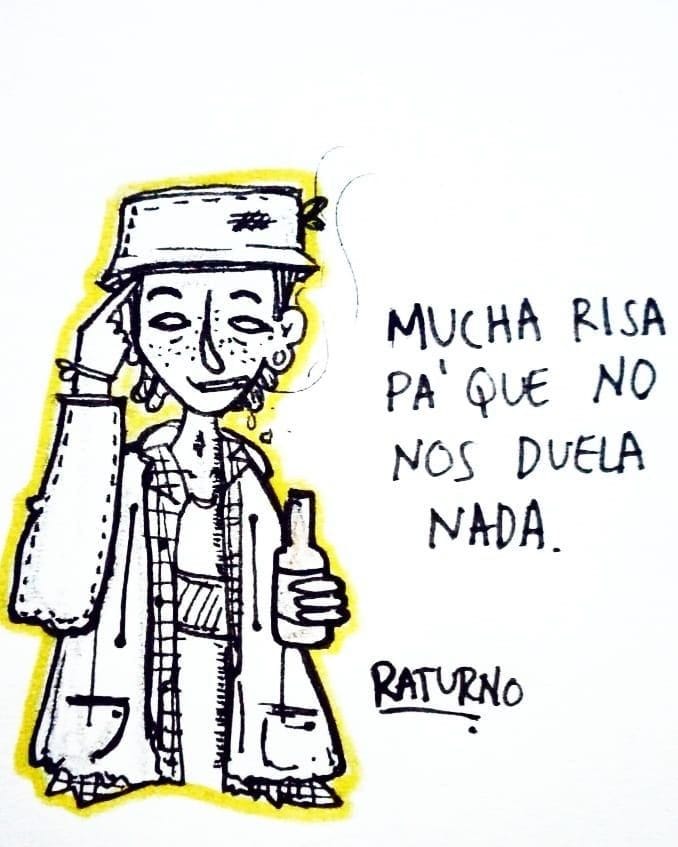 MUCHA RISA
PA' QUE NO
NOS DUELA
NADA.
RATURNO